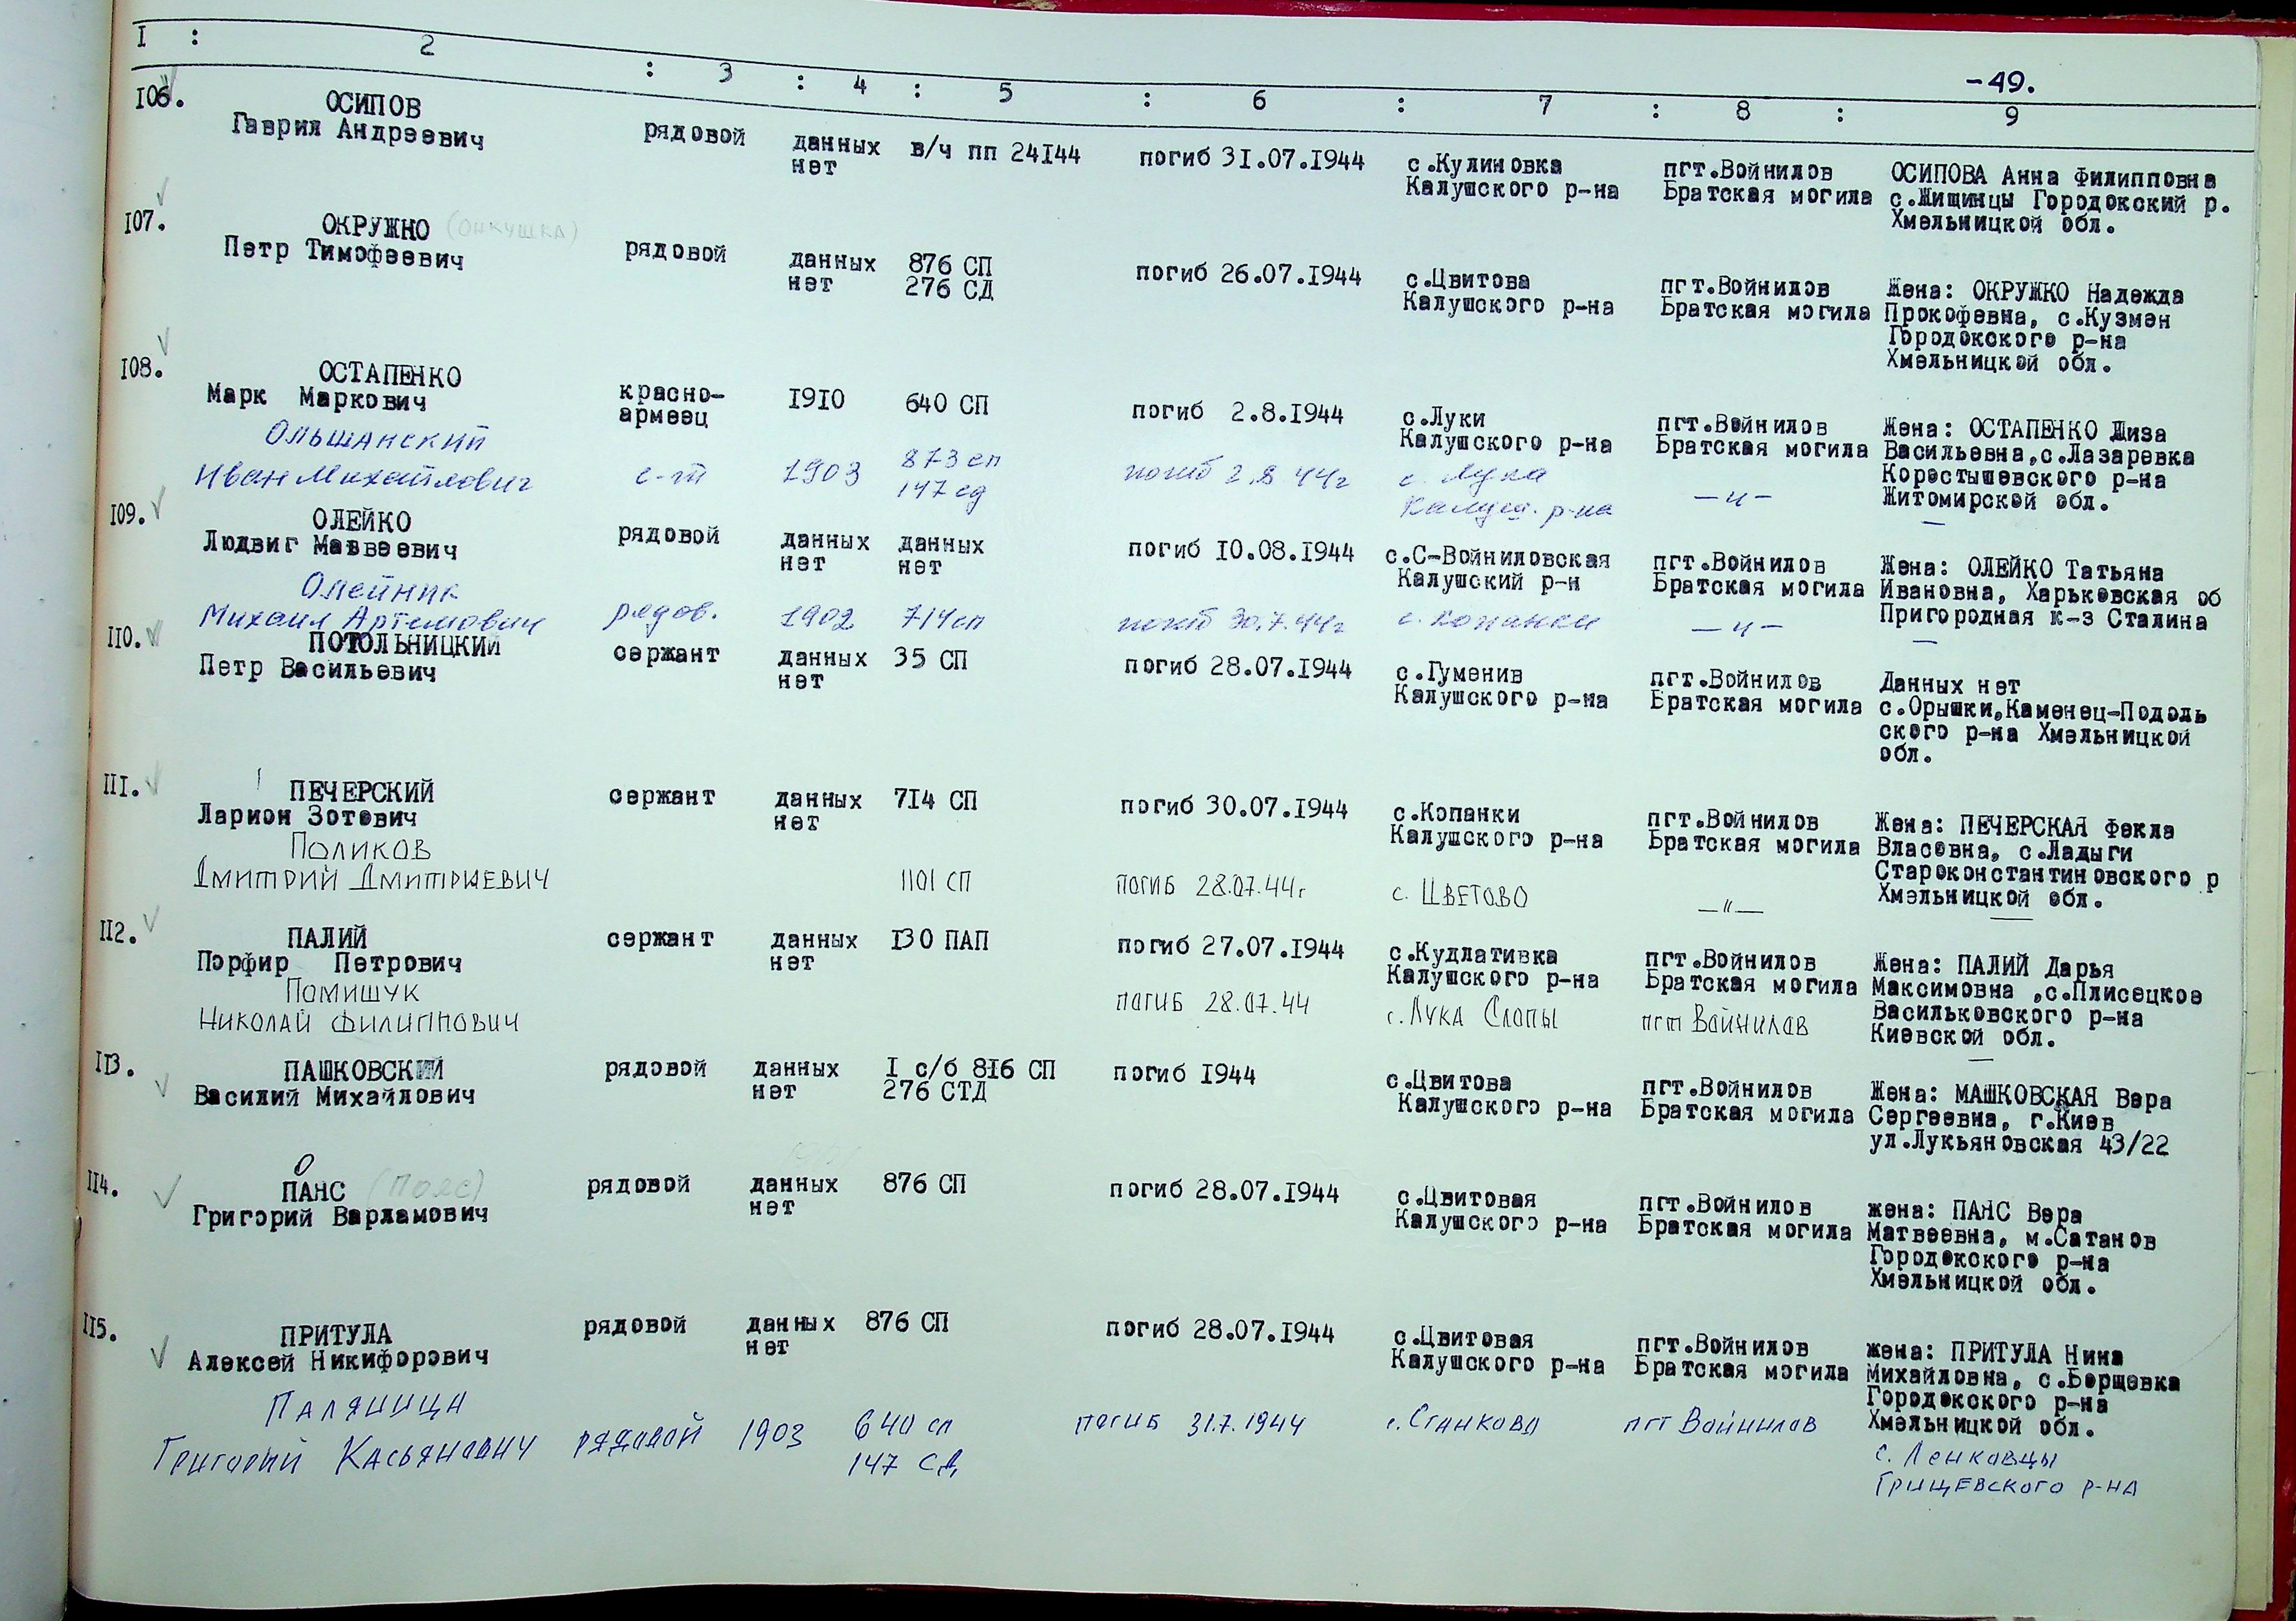 -49.
I : 2 : 3 : 4 : 5 : 6 : 7 : 8 : 9
I06. ОСИПОВ
Гаврил Андреевич рядовой данных нет в/ч пп 24I44 погиб 3I.07.I944 с.Кулиновка Калушского р-на пгт.Войнилов Братская могила ОСИПОВА Анна Филипповна
с.Жищинцы Городокский р.
Хмельницкой обл.
I07. ОКРУЖНО (ОНКУШКА)
Петр Тимофеевич рядовой данных нет 876 СП 276 СД погиб 26.07.I944 с.Цвитова Калушского р-на пгт.Войнилов Братская могила Жена: ОКРУЖКО Надежда
Прокофевна, с.Кузмен
Городокского р-на
Хмельницкой обл.
I08. ОСТАПЕНКО
Марк Маркович красно-армеец I9I0 640 СП погиб 2.8.I944 с.Луки Калушского р-на пгт.Войнилов Братская могила Жена: ОСТАПЕНКО Лиза
Васильевна,с.Лазаревка
Коростышевского р-на
Житомирской обл.
Ольшанский
Иван Михайлович с-т 1903 873 сп 147 сд погиб 2.8 44г с. Лука Калуш. р-на —"— —
I09. ОЛЕЙКО
Людвиг Матвеевич рядовой данных нет данных нет погиб I0.08.I944 с.С-Войниловская Калушский р-н пгт.Войнилов Братская могила Жена: ОЛЕЙКО Татьяна
Ивановна, Харьковская об
Пригородная к-з Сталина
Олейник
Михаил Артемович рядов. 1902 714 сп погиб 30.7.44г с. Копанки —"— —
II0. ПОТОЛЬНИЦКИЙ
Петр Васильевич сержант данных нет 35 СП погиб 28.07.I944 с.Гуменив Калушского р-на пгт.Войнилов Братская могила Данных нет
с.Орышки,Каменец-Подоль
ского р-на Хмельницкой
обл.
III. ПЕЧЕРСКИЙ
Ларион Зотович сержант данных нет 7I4 СП погиб 30.07.I944 с.Копанки Калушского р-на пгт.Войнилов Братская могила Жена: ПЕЧЕРСКАЯ Фекла
Власовна, с.Ладыги
Староконстантиновского р
Хмельницкой обл.
Поликов
Дмитрий Дмитриевич 1101 СП погиб 28.07.44г с. Цветово —"— —
II2. ПАЛИЙ
Порфир Петрович сержант данных нет I30 ПАП погиб 27.07.I944 с.Кудлативка Калушского р-на пгт.Войнилов Братская могила Жена: ПАЛИЙ Дарья
Максимовна ,с.Плисецкое
Васильковского р-на
Киевской обл.
Помищук
Николай Филиппович погиб 28.07.44 с. Лука Слопы пгт Войнилов —
II3. ПАШКОВСКИЙ
Василий Михайлович рядовой данных нет I с/б 8I6 СП 276 СТД погиб I944 с.Цвитова Калушского р-на пгт.Войнилов Братская могила Жена: МАШКОВСКАЯ Вера
Сергеевна, г.Киев
ул.Лукьяновская 43/22
О
II4. ПАНС (Пояс)
Григорий Варламович рядовой данных нет 876 СП погиб 28.07.I944 с.Цвитовая Калушского р-на пгт.Войнилов Братская могила жена: ПАНС Вера
Матвеевна, м.Сатанов
Городокского р-на
Хмельницкой обл.
II5. ПРИТУЛА
Алексей Никифорович рядовой данных нет 876 СП погиб 28.07.I944 с.Цвитовая Калушского р-на пгт.Войнилов Братская могила жена: ПРИТУЛА Нина
Михайловна, с.Борщовка
Городокского р-на
Хмельницкой обл.
Паляница
Григорий Касьянович рядовой 1903 640 сп 147 СД погиб 31.7.1944 с. Станкова пгт Войнилов с. Ленковцы
Грищевского р-на